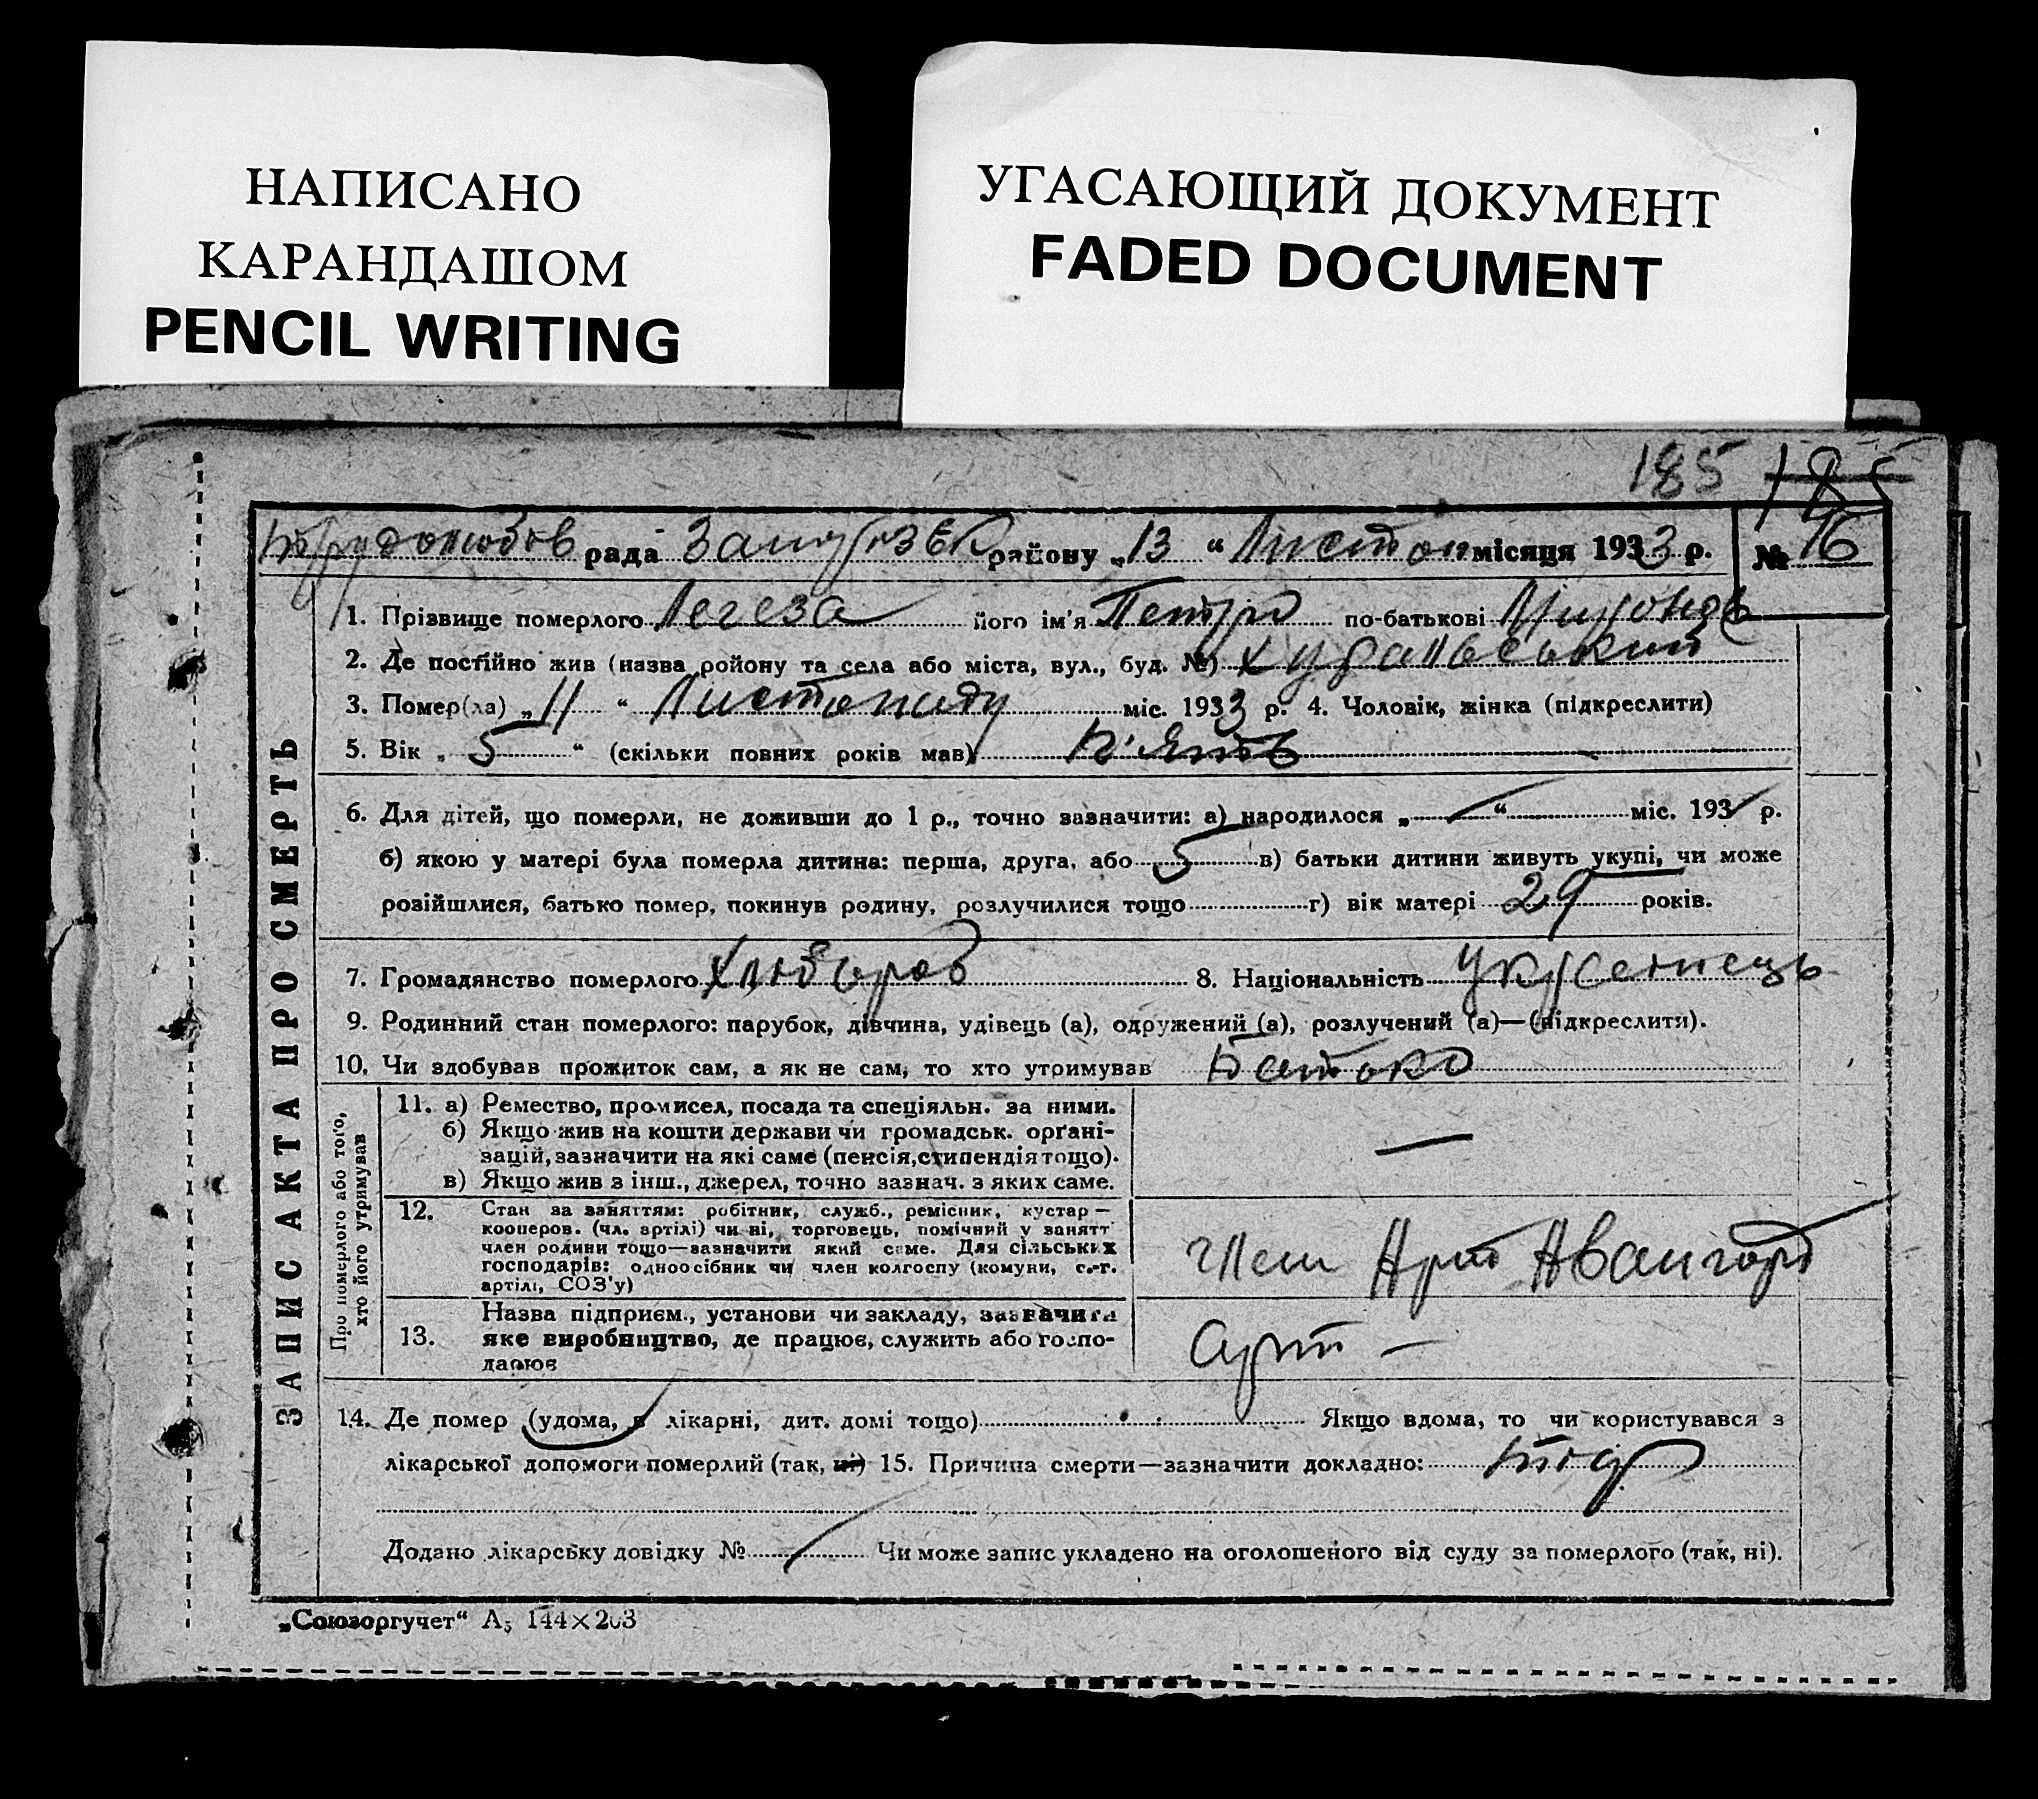 НАПИСАНО
КАРАНДАШОМ
PENCIL WRITING
УГАСАЮЩИЙ ДОКУМЕНТ
FADED DOCUMENT
185 185
рада району „13“ Листоп місяця 1933 р. № 16
1. Прізвище померлого Легеза його ім'я Петро по-батькові
2. Де постійно жив (назва ройону та села або міста, вул., буд. №)
3. Помер(ла) „11“ Листопаду міс. 1933 р. 4. Чоловік, жінка (підкреслити)
5. Вік „5“ (скільки повних років мав) п'ять
6. Для дітей, що померли, не доживши до 1 р., точно зазначити: а) народилося „ “ міс. 193 р.
б) якою у матері була померла дитина: перша, друга, або 5 в) батьки дитини живуть укупі, чи може
розійшлися, батько помер, покинув родину, розлучилися тощо г) вік матері 29 років.
7. Громадянство померлого Хлібороб 8. Національність Українець
9. Родинний стан померлого: парубок, дівчина, удівець (а), одружений (а), розлучений (а)—(підкреслити).
10. Чи здобував прожиток сам, а як не сам, то хто утримував Батько
ЗАПИС АКТА ПРО СМЕРТЬ
Про померлого або того,
хто його утримував
11. а) Ремество, промисел, посада та спеціяльн. за ними. —
б) Якщо жив на кошти держави чи громадськ. орґані-
зацій, зазначити на які саме (пенсія, стипендія тощо).
в) Якщо жив з інш., джерел, точно зазнач. з яких саме.
12. Стан за заняттям: робітник, служб., ремісник, кустар—
кооперов. (чл. артілі) чи ні, торговець, помічний у занятт
член родини тощо—зазначити який саме. Для сільських
господарів: одноосібник чи член колгоспу (комуни, с.-г.
артілі, СОЗ'у)
Член Арт Авангорд
13. Назва підприєм., установи чи закладу, зазначити
яке виробництво, де працює, служить або госпо-
дарює
Арт —
14. Де помер (удома, в лікарні, дит. домі тощо) Якщо вдома, то чи користувався з
лікарської допомоги померлий (так, ні) 15. Причина смерти—зазначити докладно:
Додано лікарську довідку № Чи може запис укладено на оголошеного від суду за померлого (так, ні).
„Союзоргучет“ А5 144×203